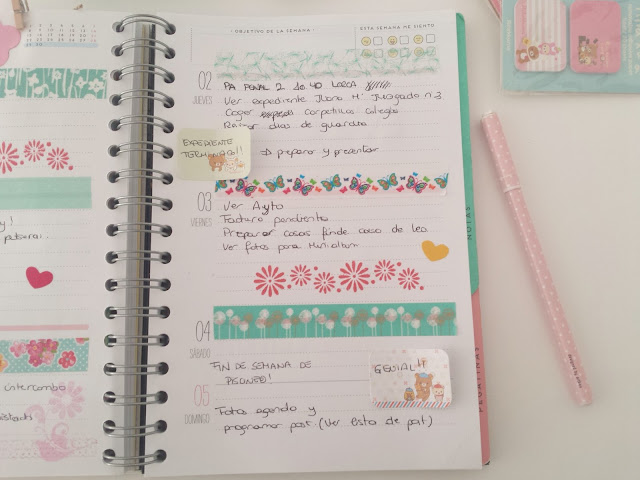 · OBJETIVO DE LA SEMANA ·
ESTA SEMANA ME SIENTO
02
JUEVES
PA PENAL 2 LORCA
Ver expediente Juana Mª Juzgado nº3
Coger carpetillas colegio
Revisar dias de guardia
EXPEDIENTE
TERMINADO!!
→ preparar y presentar
03
VIERNES
Ver Ayto
Factura pendiente
Preparar cosas finde casa de Leo
Ver fotos para Minialbum
04
SÁBADO
FIN DE SEMANA DE
GENIAL!!
05
DOMINGO
Fotos agenda y
programar post. (Ver lista de pat)
NOTAS
PEGATINAS
y!
pulsera..
intercambo